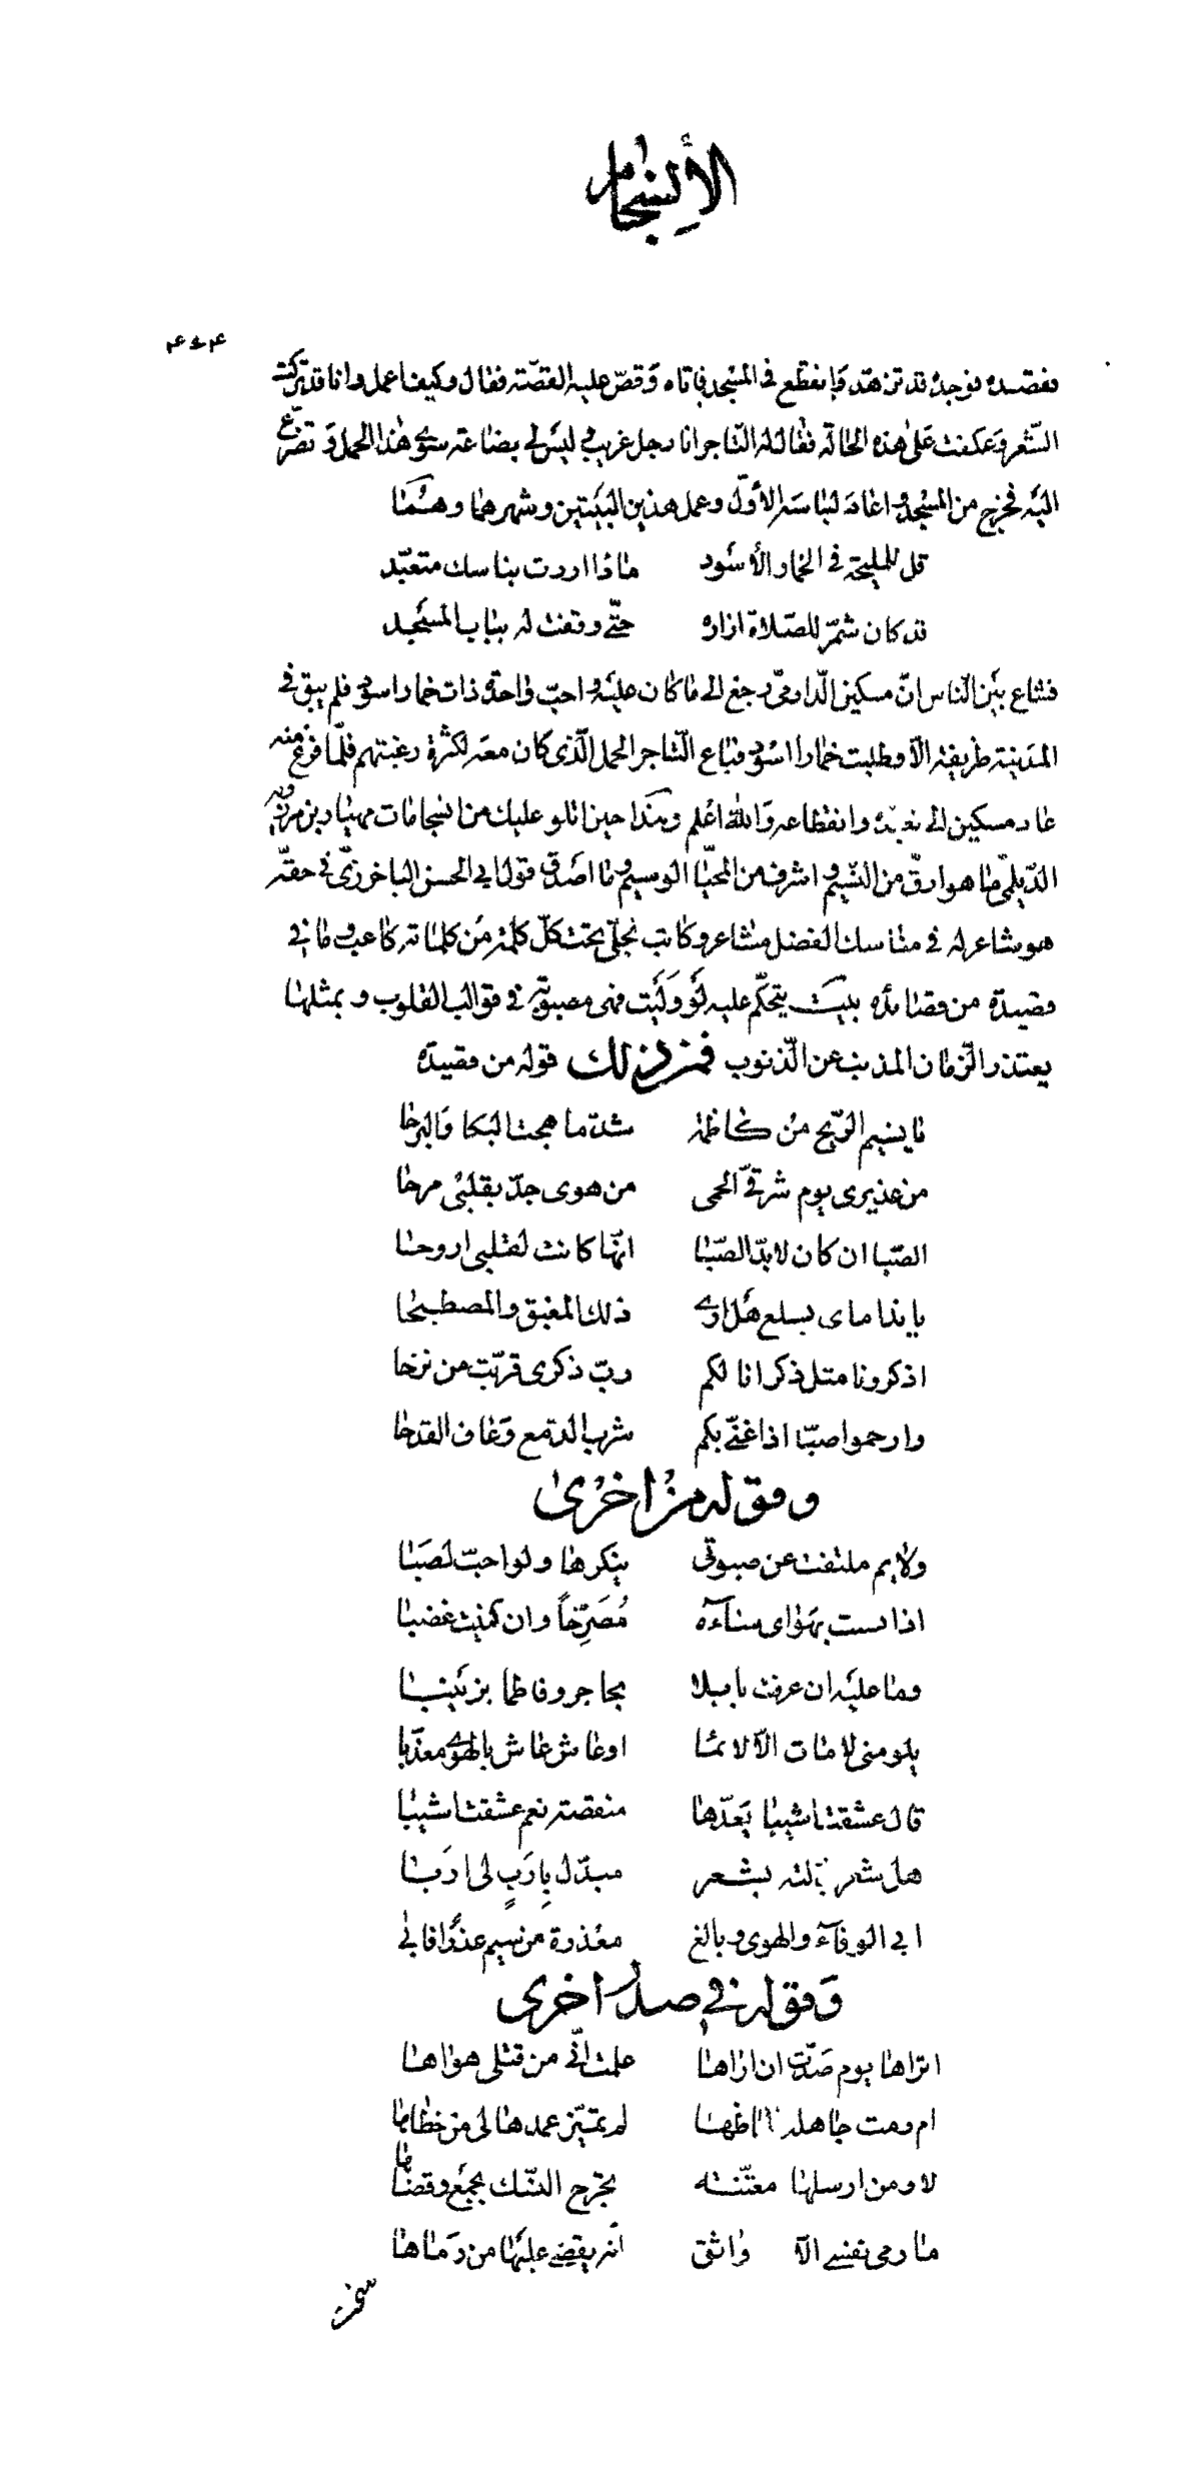 الأنسجام
٤٤٤
فقصده فوجده قد تزهّد وانقطع في المسجد فاتاه وقصّ عليه القصّة فقال وكيف اعمل وانا قد تركت
الشّعر وعكفت على هذه الحالة فقال له التّاجر انا رجل غريب ليس لي بضاعة سوى هذا الحمل وتضرّع
اليه فخرج من المسجد واعاد لباسه الاوّل وعمل هذين البيتين وشهرهما وهما
قل للمليحة في الخمار الأسود ماذا اردت بناسك متعبّد
قد كان شمّر للصّلاة ازاره حتّى وقفت له بباب المسجد
فشاع بين النّاس انّ مسكين الدّارمي رجع الى ما كان عليه واحبّ واحدة ذات خمار اسود فلم يبق في
المدينة ظريفة الّا وطلبت خمارا اسود فباع التّاجر الحمل الّذي كان معه لكثرة رغبتهم فلمّا فرغ منه
عاد مسكين الى تعبّده وانقطاعه والله اعلم وهكذا حين اتلو عليك من انسجامات مهيار بن مرزويه
الدّيلمي ما هو ارقّ من النّسيم واشرف من المحيّا الوسيم وما اصدق قول ابي الحسن الباخرزيّ في حقّه
هو شاعر له في مناسك الفضل مشاعر وكاتب تجلّى تحت كلّ كلمة من كلماته كاعب وما في
قصيدة من قصائده بيت يتحكّم عليه لو وليت فهي مصبوبة في قوالب القلوب وبمثلها
يعتذر الزّمان المذنب عن الذّنوب فمن ذلك قوله من قصيدة
يا نسيم الرّيح من كاظمة شدّ ما هجت البكا والبرحا
من عذيري يوم شرقيّ الحمى من هوى جدّ بقلبي مرحا
الصّبا ان كان لا بدّ الصّبا انّها كانت لقلبي اروحا
يا نداماي بسلع هل ارى ذلك المغبق والمصطبحا
اذكرونا مثل ذكرانا لكم ربّ ذكرى قرّبت من نزحا
وارحموا صبّا اذا غنّى بكم شرب الدّمع وعاف القدحا
وقوله من اخرى
ولائم ملتفت عن صبوتي ينكرها ولو احبّ لصبا
اذا نسبت بهواي ساءه مصرّحاً وان كنيت غضبا
وما عليه ان عرفت بابلا بحاجر وفاطما بزينبا
يلومني لا مات الّا لائما او عاش عاش بالهوى معذّبا
قال عشقت اشيبا يعدّها منقصة نعم عشقت اشيبا
هل شعر بدّلته بشعر مبدّل بأرب لي اربا
ابى الوفاء والهوى وبالغ معذرة من سيم عذرا فابى
وقوله في صدر اخرى
اتراها يوم صدّت ان اراها علمت انّي من قتلى هواها
ام رمت جاهلة الحاظها لم تميّز عمدها لي من خطاها
لا ومن ارسلها مفتّنة تخرج النّسك بجمع وقضاها
ما رمى نفسي الّا واثق انّه يقضي عليها من رماها